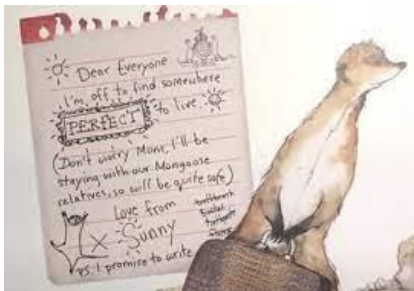 Dear Everyone
I'm off to find somewhere
PERFECT to live.
(Don't worry Mum, I'll be
staying with our Mongoose
relatives, so will be quite safe)
Love from
X Sunny
P.S. I promise to write